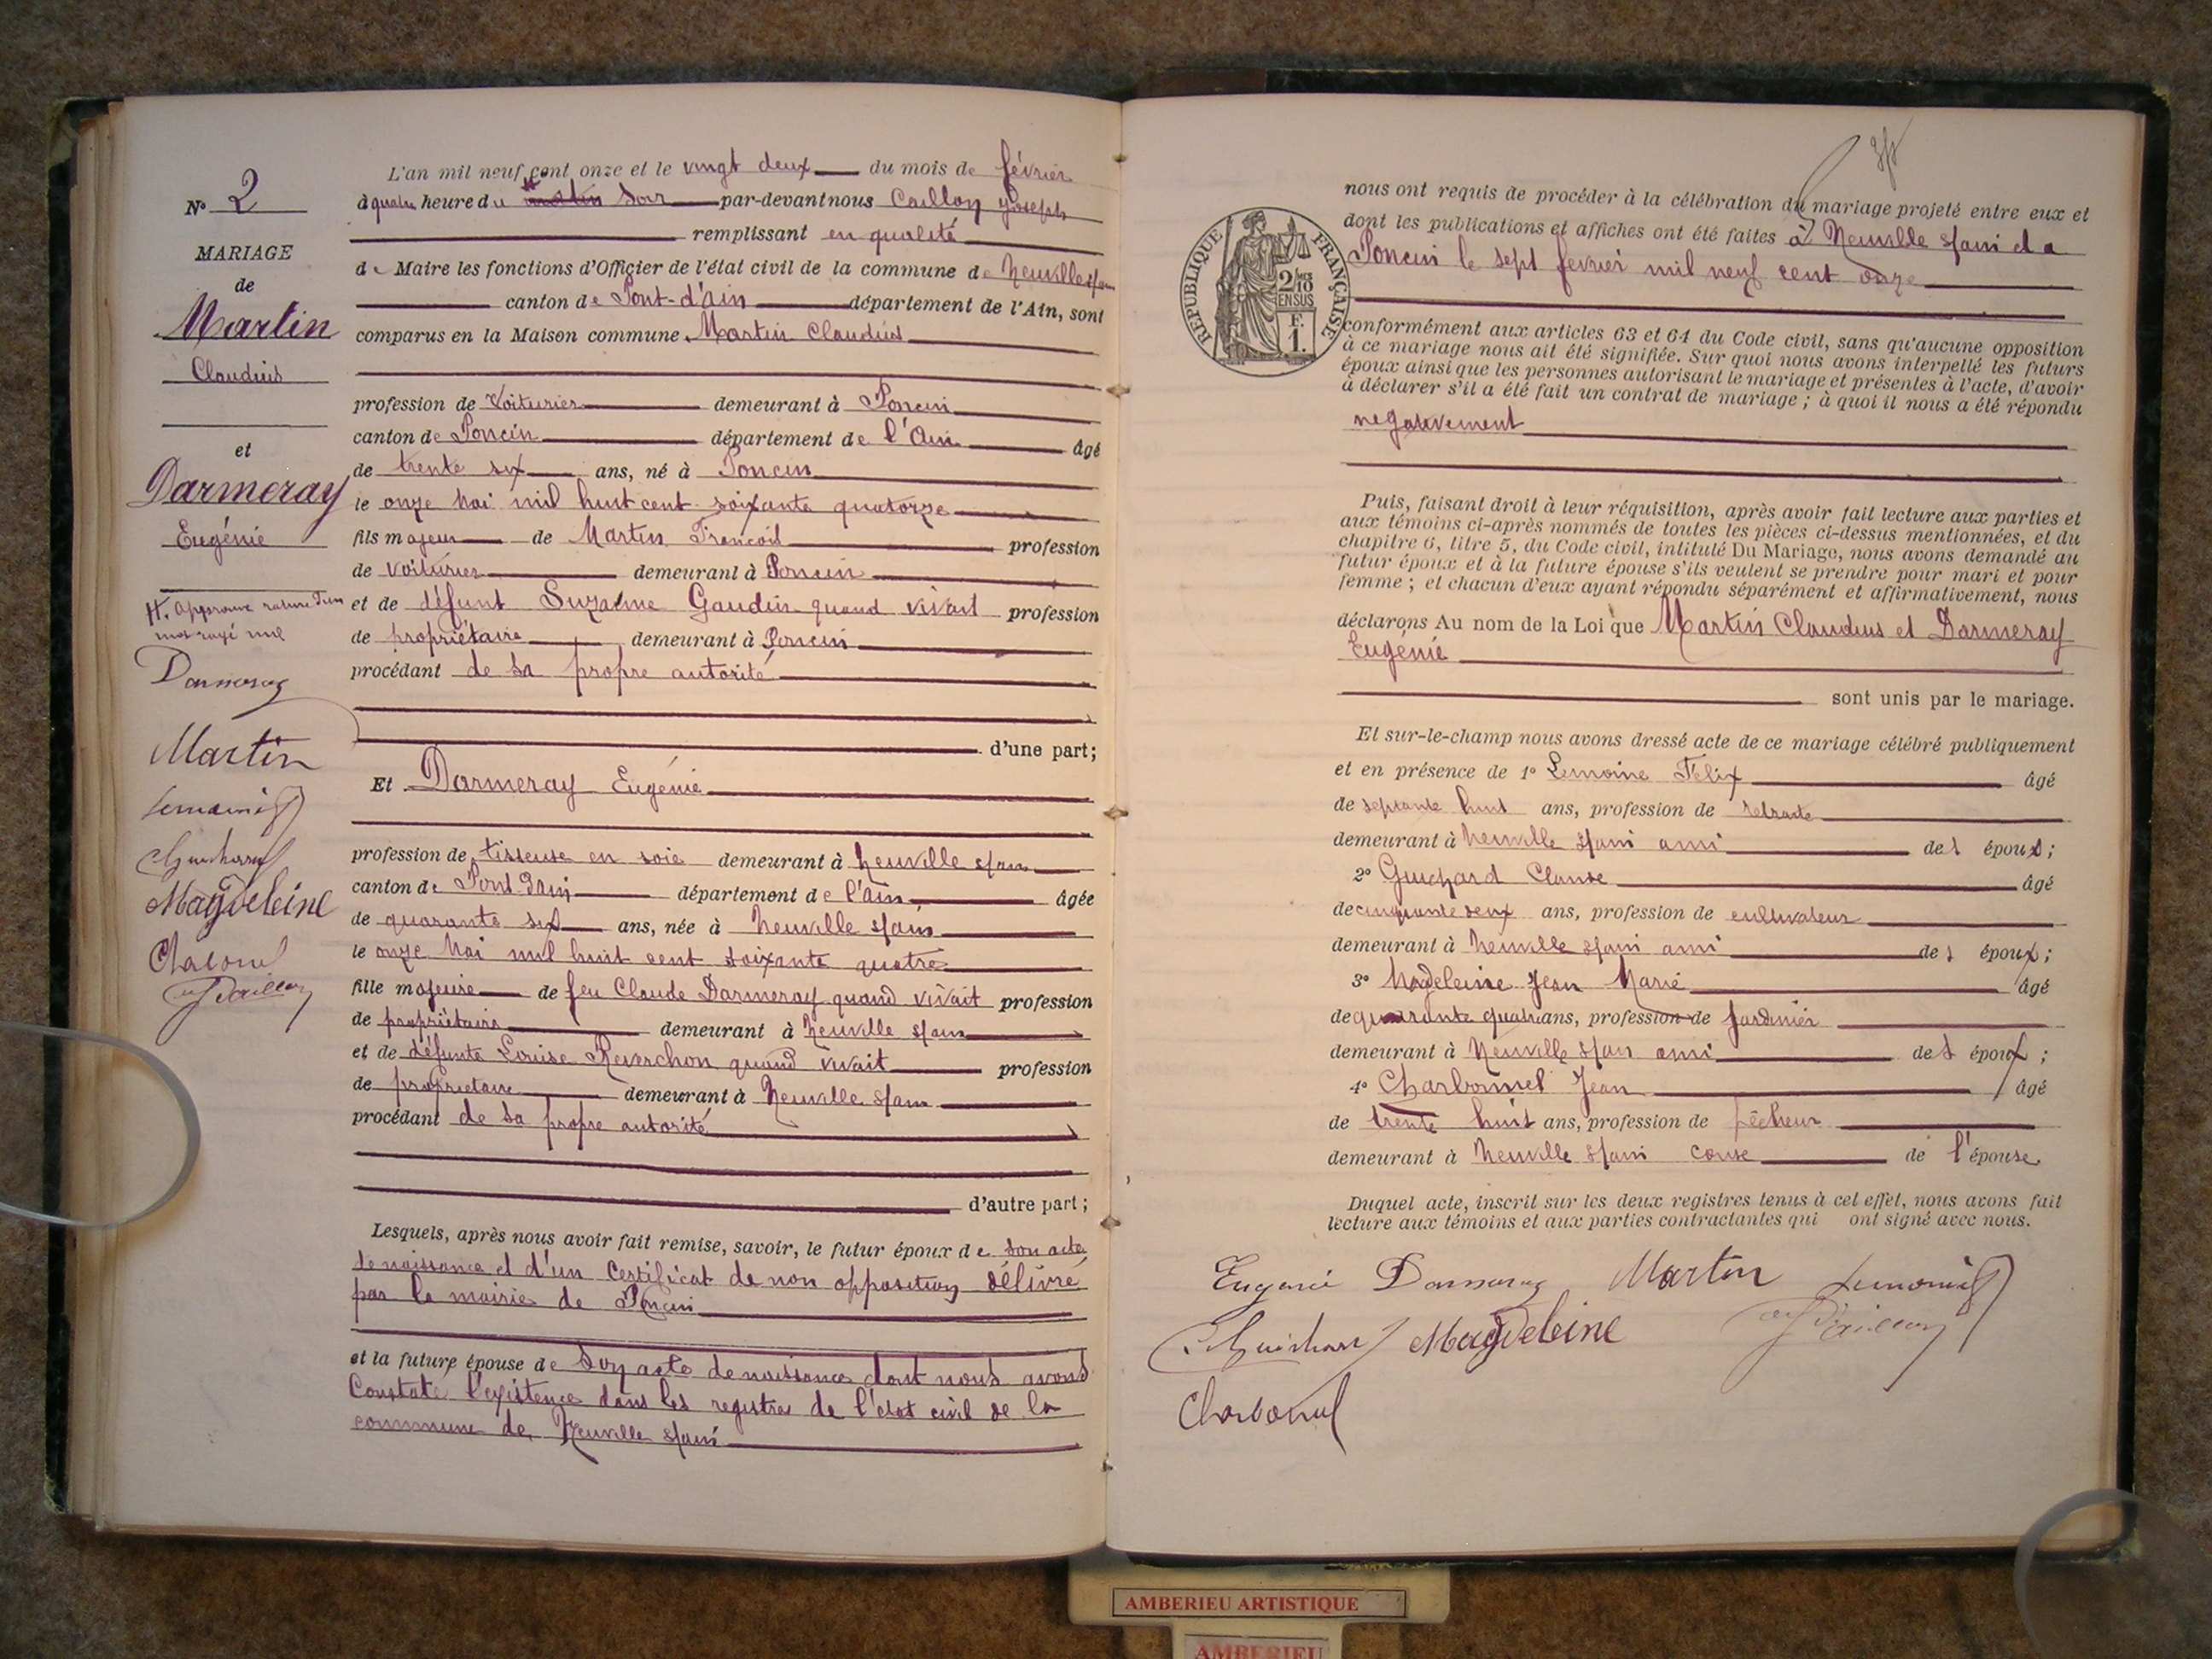 L'an mil neuf cent onze et le vingt deux du mois de février
à quatre heure du matin soir par-devant nous Caillon Joseph
remplissant en qualité
de Maire les fonctions d'Officier de l'état civil de la commune de Neuville s/ain
canton de Pont-d'ain département de l'Ain, sont
comparus en la Maison commune. Martin Claudius
profession de Voiturier demeurant à Poncin
canton de Poncin département de l'Ain âgé
de trente six ans, né à Poncin
le onze Mai mil huit cent soixante quatorze
fils majeur de Martin François profession
de voiturier demeurant à Poncin
et de défunt Suzanne Gaudin quand vivait profession
de propriétaire demeurant à Poncin
procédant de sa propre autorité
d'une part;
Et Darmeray Eugénie
profession de tisseuse en soie demeurant à Neuville s/ain
canton de Pont d'ain département de l'ain âgée
de quarante six ans, née à Neuville s/ain
le onze Mai mil huit cent soixante quatre
fille majeure de feu Claude Darmeray quand vivait profession
de propriétaire demeurant à Neuville s/ain
et de défunte Louise Reverchon quand vivait profession
de propriétaire demeurant à Neuville s/ain
procédant de sa propre autorité
d'autre part;
Lesquels, après nous avoir fait remise, savoir, le futur époux de son acte
de naissance et d'un Certificat de non opposition délivré
par la mairie de Poncin
et la future épouse de son acte de naissance dont nous avons
Constaté l'existence dans les registres de l'état civil de la
commune de Neuville s/ain
No 2
MARIAGE
de
Martin
Claudius
et
Darmeray
Eugénie
approuve rature d'un
mot rayé nul
Darmeray
Martin
Lemoine
Guichard
Magdeleine
Charbonel
Caillon
nous ont requis de procéder à la célébration du mariage projeté entre eux et
dont les publications et affiches ont été faites à Neuville s/ain et a
Poncin le sept fevrier mil neuf cent onze
RÉPUBLIQUE FRANÇAISE
2/10
EN SUS
F.
1.
conformément aux articles 63 et 64 du Code civil, sans qu'aucune opposition
à ce mariage nous ait été signifiée. Sur quoi nous avons interpellé les futurs
époux ainsi que les personnes autorisant le mariage et présentes à l'acte, d'avoir
à déclarer s'il a été fait un contrat de mariage; à quoi il nous a été répondu
negativement
Puis, faisant droit à leur réquisition, après avoir fait lecture aux parties et
aux témoins ci-après nommés de toutes les pièces ci-dessus mentionnées, et du
chapitre 6, titre 5, du Code civil, intitulé Du Mariage, nous avons demandé au
futur époux et à la future épouse s'ils veulent se prendre pour mari et pour
femme; et chacun d'eux ayant répondu séparément et affirmativement, nous
déclarons Au nom de la Loi que Martin Claudius et Darmeray
Eugénie
sont unis par le mariage.
Et sur-le-champ nous avons dressé acte de ce mariage célébré publiquement
et en présence de 1º Lemoine Felix âgé
de septante huit ans, profession de retraite
demeurant à Neuville s/ain ami des époux;
2º Guichard Clause âgé
de cinquante deux ans, profession de cultivateur
demeurant à Neuville s/ain ami des époux;
3º Magdeleine Jean Marie âgé
de quarante quatre ans, profession de Jardinier
demeurant à Neuville s/ain ami des époux;
4º Charbonnel Jean âgé
de trente huit ans, profession de pêcheur
demeurant à Neuville s/ain de l'épouse
Duquel acte, inscrit sur les deux registres tenus à cet effet, nous avons fait
lecture aux témoins et aux parties contractantes qui ont signé avec nous.
Eugenie Darmeray Martin Lemoine
Guichard Magdeleine Caillon
Charbonnel
AMBERIEU ARTISTIQUE
AMBERIEU